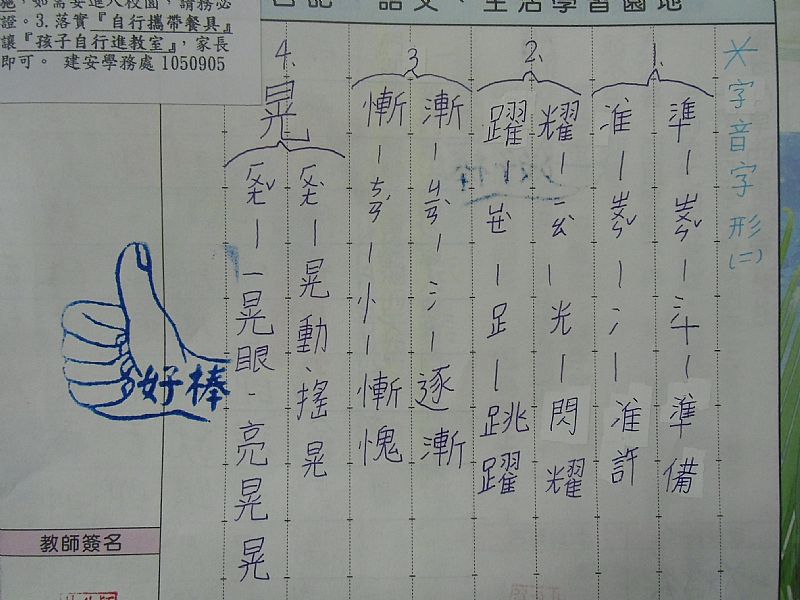 施,如需要進入校園,請務必
證。3.落實『自行攜帶餐具』
讓『孩子自行進教室』,家長
即可。 建安學務處 1050905
語文、生活學習園地
*字音字形(二)
1.
準-ㄓㄨㄣˇ-氵十-準備
准-ㄓㄨㄣˇ-冫-准許
2.
耀-ㄧㄠˋ-光-閃耀
躍-ㄩㄝˋ-足-跳躍
3.
漸-ㄐㄧㄢˋ-氵-逐漸
慚-ㄘㄢˊ-忄-慚愧
4.
晃
ㄏㄨㄤˋ-晃動、搖晃
ㄏㄨㄤˇ-一晃眼-亮晃晃
好棒
教師簽名